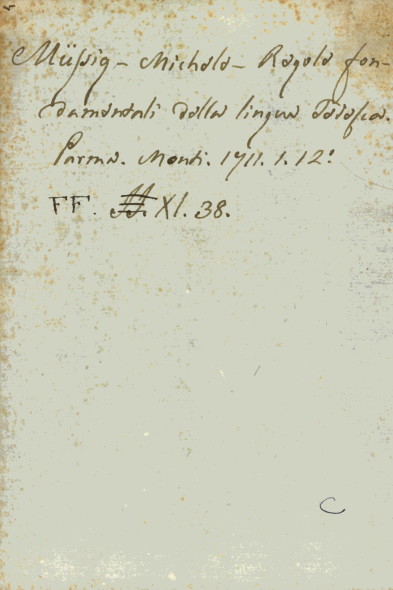 Müßig - Michele - Regole fon-
damentali della lingua Tedesca.
Parma. Monti. 1711. 1. 12°
FF. XI. 38.
C